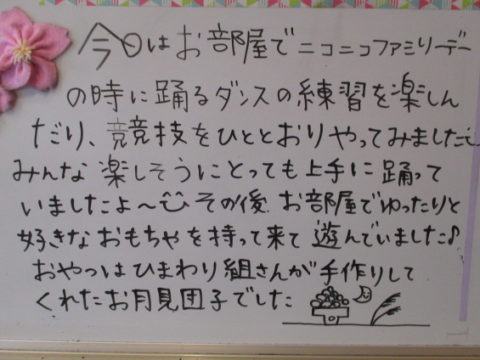 今日はお部屋でニコニコファミリーデー
の時に踊るダンスの練習を楽しん
だり、競技をひととおりやってみました
みんな楽しそうにとっても上手に踊って
いましたよ～その後、お部屋でゆったりと
好きなおもちゃを持って来て遊んでいました♪
おやつはひまわり組さんが手作りして
くれたお月見団子でした